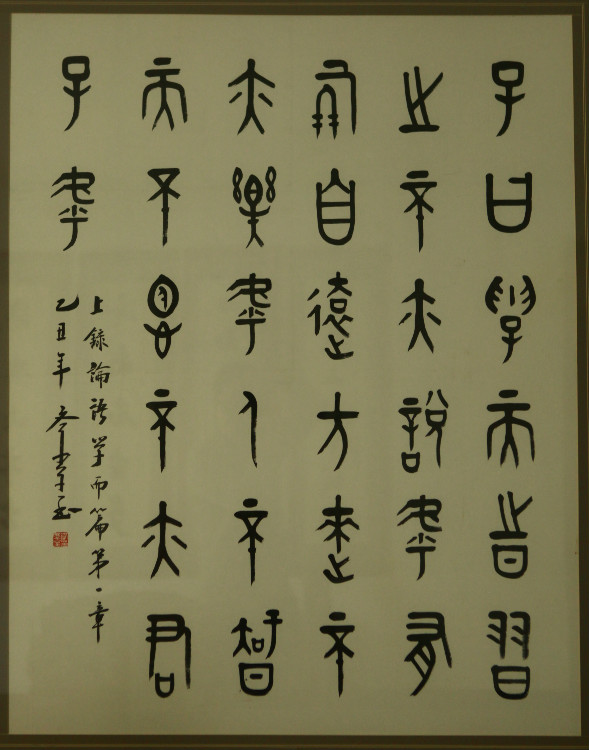 子曰學而時習
之不亦說乎有
朋自遠方來不
亦樂乎人不智
而不慍不亦君
子乎
上錄論語學而篇第一章
乙丑年